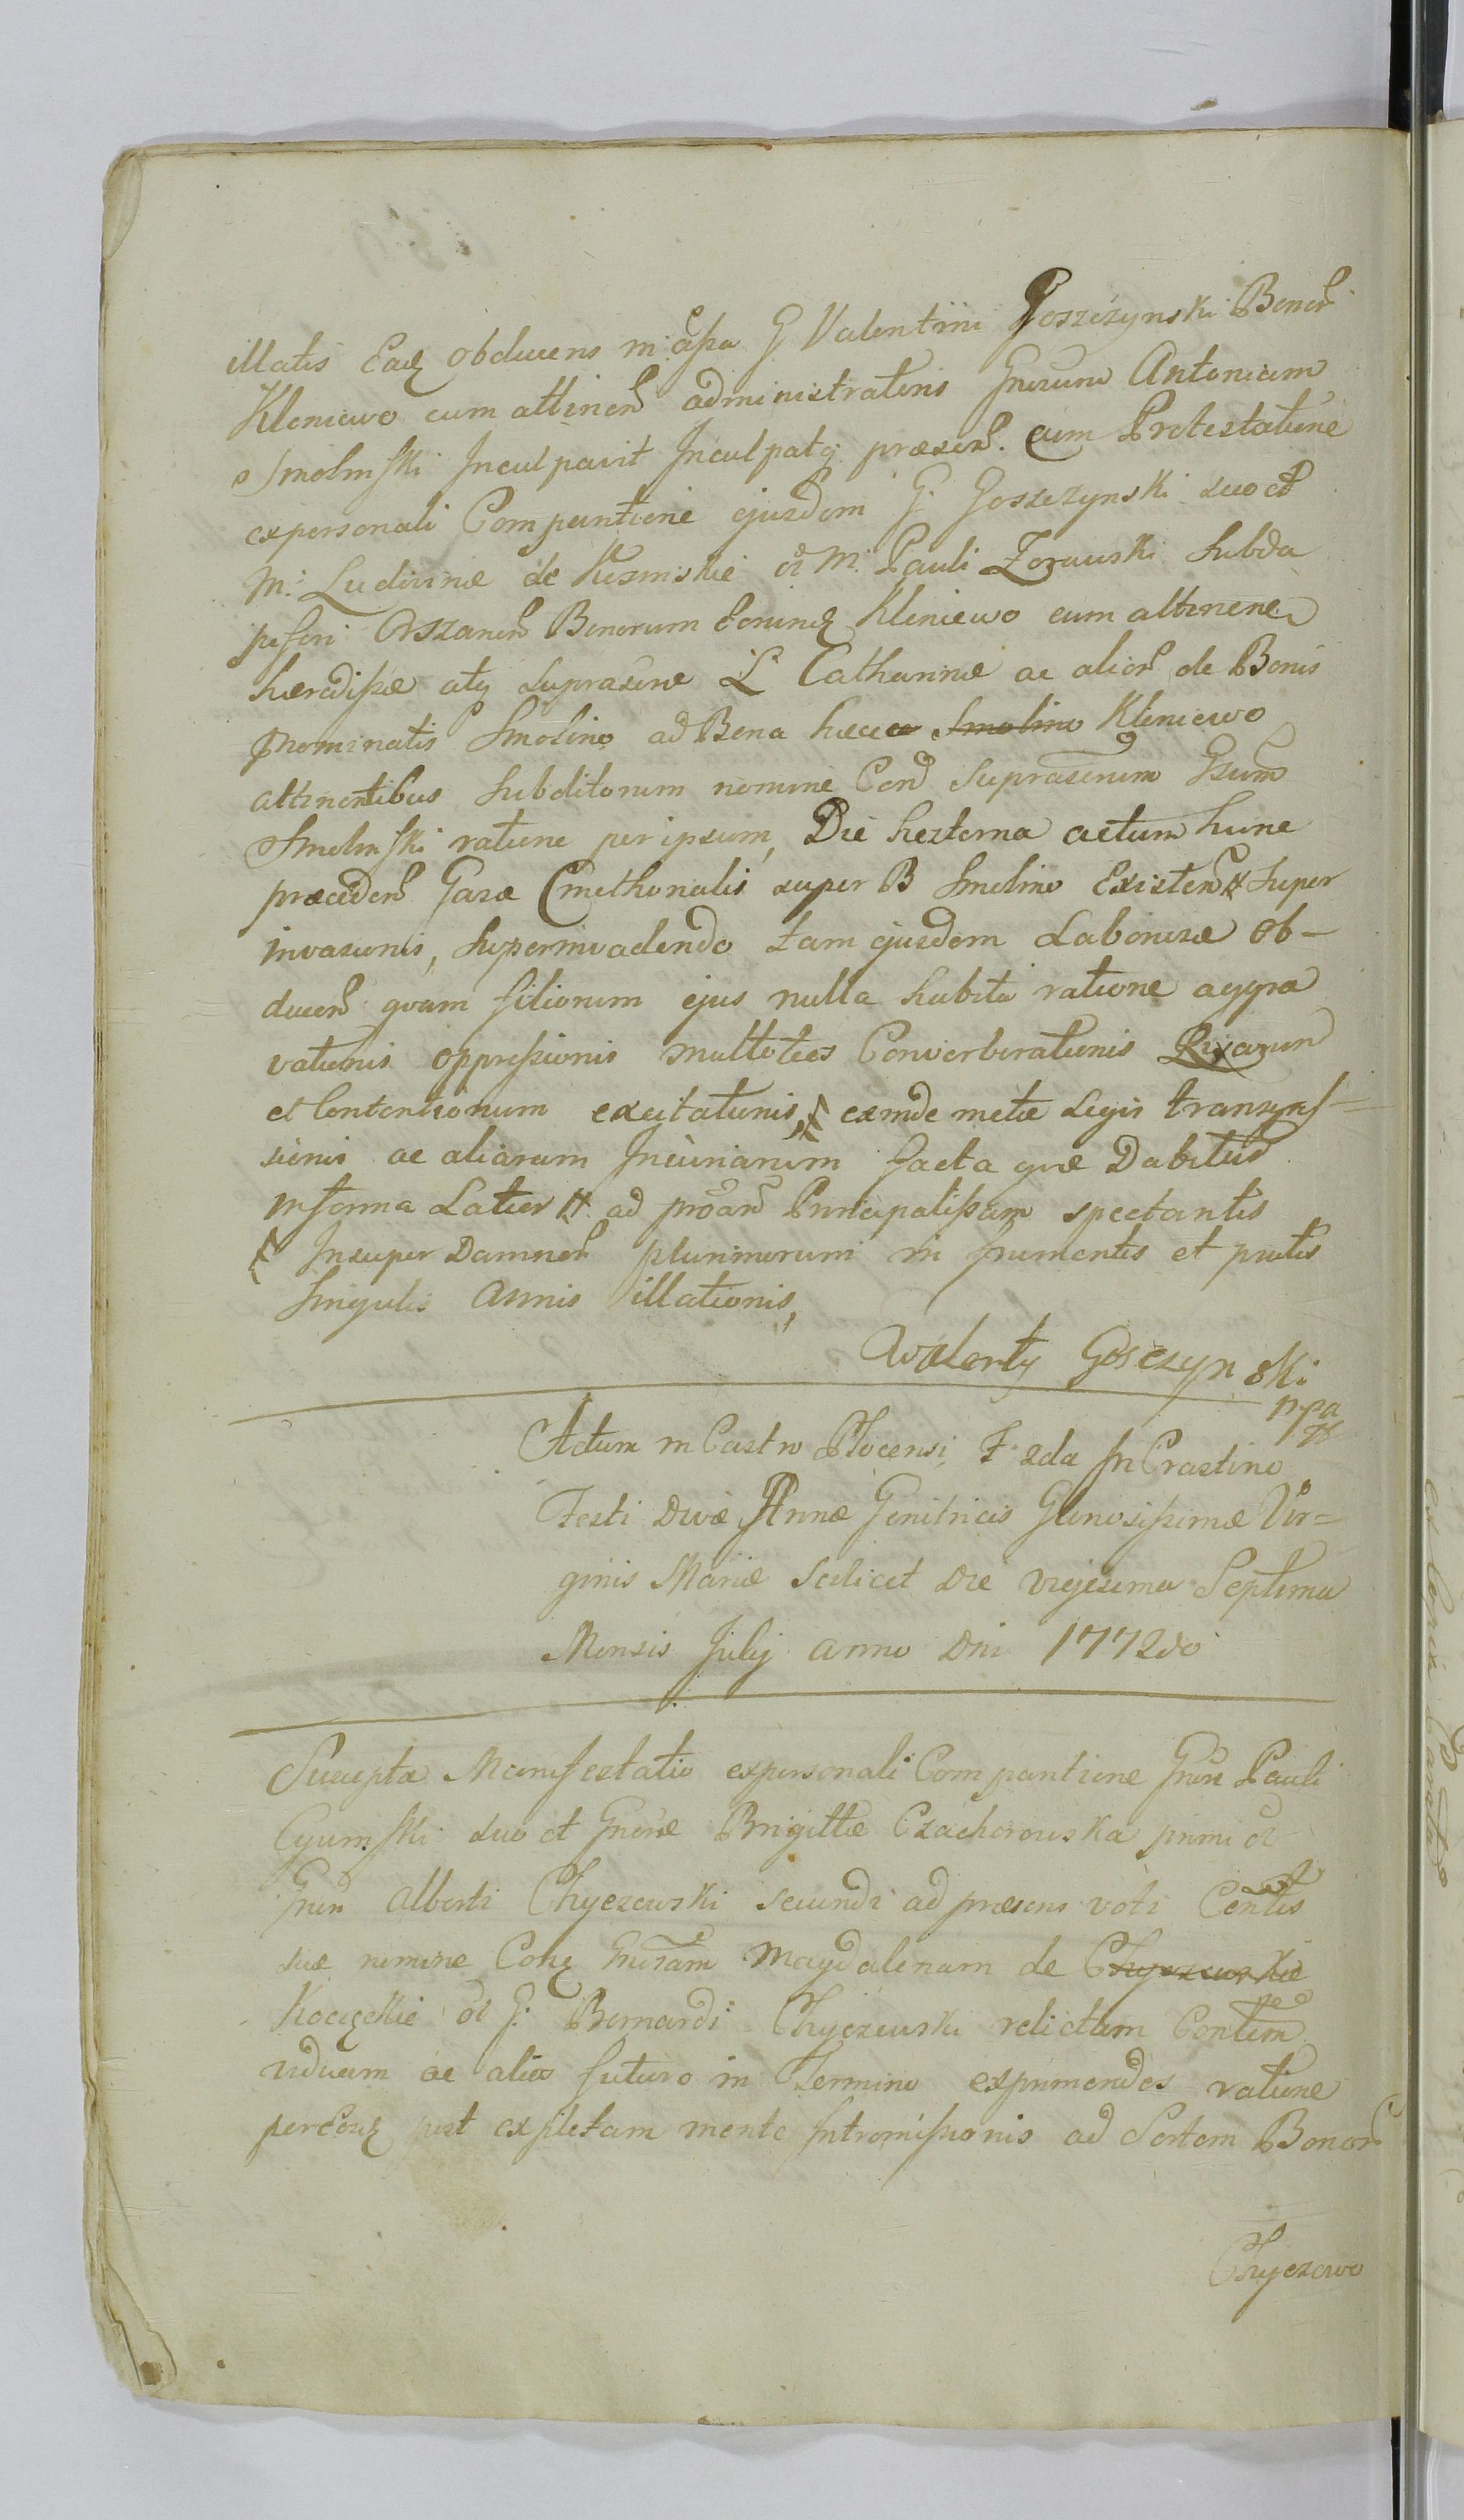 illatis Eaq obducens m apa G Valentini Goszczynski Bonor
Kleniewo cum attinen administratoris Gnerum Antonium
Smolinski Inculpavit Inculpatq praesen. cum Protestatione
ex personali Comparitione ejusdem G. Goszczynski suo et
M. Ludovinae de Kesinskie M. Pauli Zorawski Subda
Orszanen Bonorum Eorundq Kleniewo cum attinen
haeredissae atq suprascrae L Catharinae ac alior de Bonis
nominatis Smolino ad Bona haec Smolino Kleniewo
attinentibus Subditorum nomine Con Suprascrum Gsum
Smolinski ratione per ipsum, Die hesterna actum hunc
praeceden Gazae Cmethonalis super B Smolino Existen Super
invasionis, Superinvadendo tam ejusdem Laboriosae ob-
ducen quam filiorum ejus nulla habita ratione aggra
vationis oppressionis multoties Converberationis Rixarum
et Contentionum excitationis, exinde metae Legis transgres=
sionis ac aliarum Iniuriarum facta quae Dabitur
in forma Latior ad proan Principalissam spectantis
Insuper Damnor plurimorum in frumentis et pratis
Singulis Annis illationis,
Walenty Gosczynski
mpa
Actum in Castro Plocensi F. 2da In Crastino
Festi Divae Annae Genitricis Gloriosissimae Vir=
ginis Mariae Scilicet Die Vigesima Septima
Mensis Julij Anno Dni 1772do
Suscepta Manifestatio ex personali Comparitione Gnsi Pauli
Cyumski suo et Gnsae Brigittae Czachorowska primi
Gnsi Alberti Chyczewski secundi ad praesens voti Contis
suae nomine Conq Gnrsam Magdalenam de Chyczewskie
Kocięckie G. Bernardi Chyczewski relictam Contem
viduam ac alios futuro in Termino exprimendos ratione
per Eosq post expletam mente Intromissionis ad Sortem Bonor
Chyczewo